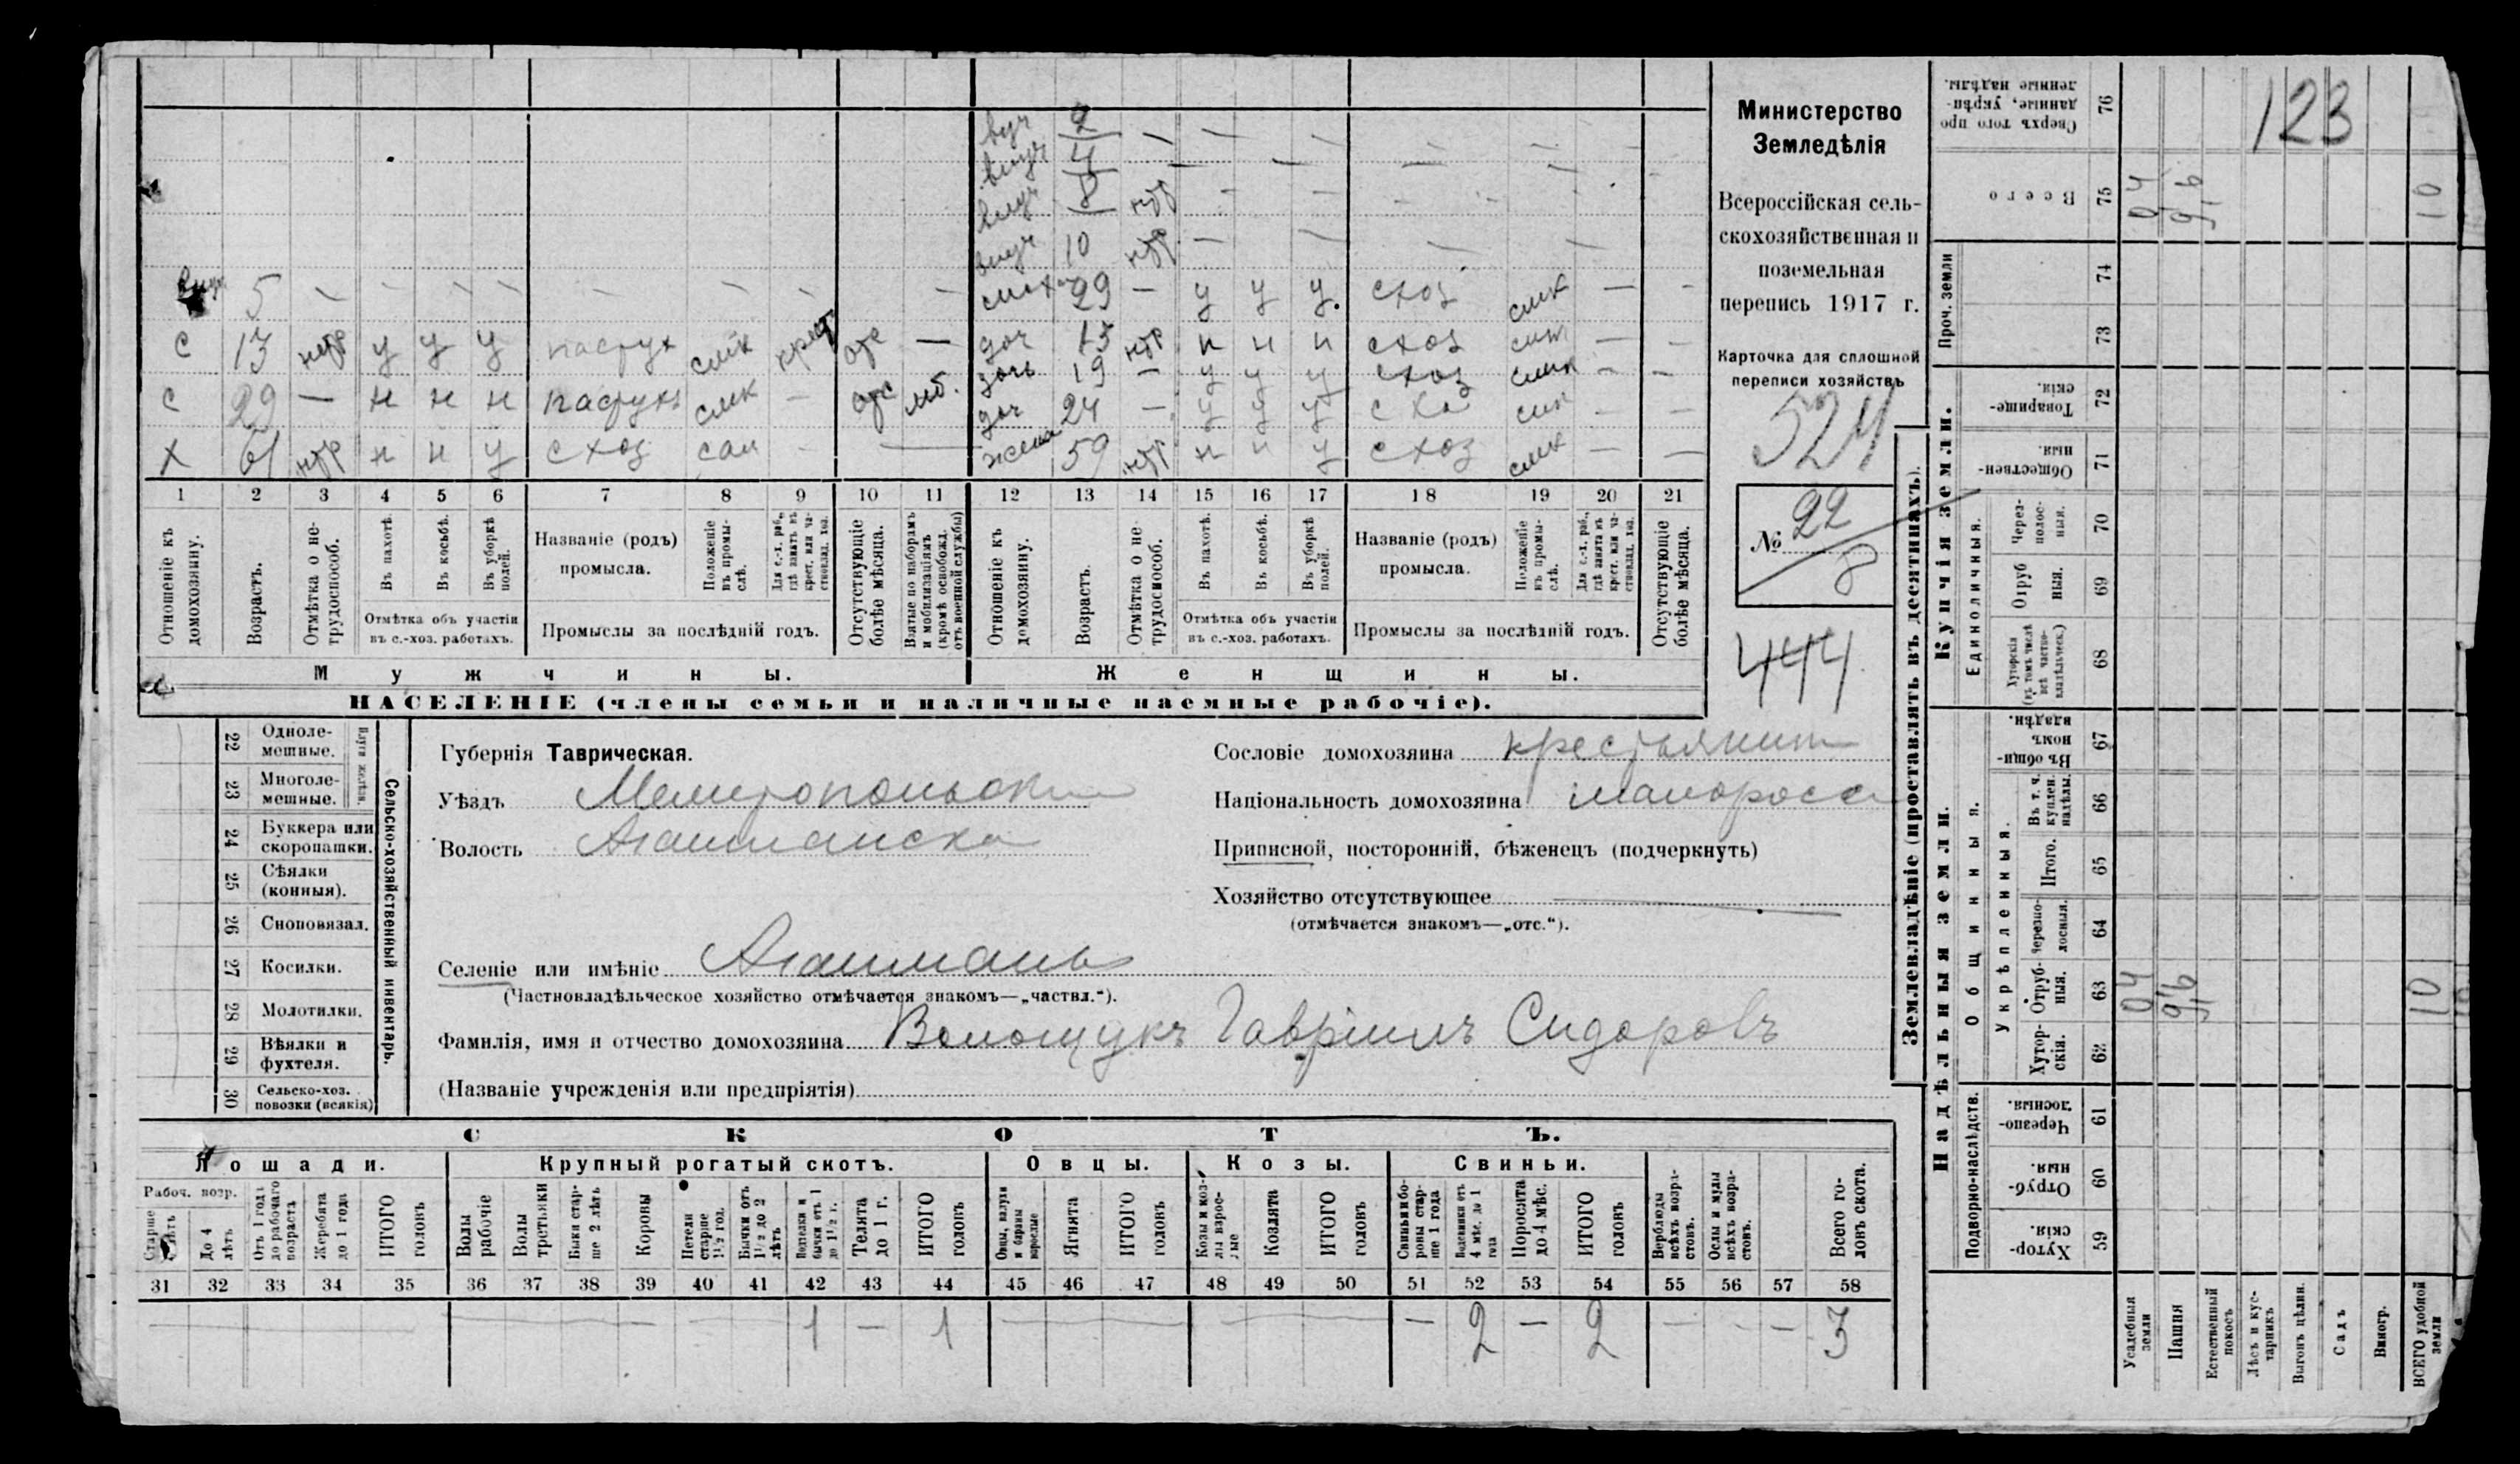 123
Министерство
Земледѣлія
Всероссійская сель-
скохозяйственная и
поземельная
перепись 1917 г.
Карточка для сплошной
переписи хозяйствъ
524
№ 22
8
444
внуч 2 — — — — — —
внуч 4 — — — —
внуч 8 нтр — — — — —
внуч 10 нтр — — — —
внук 5 — — — — — — — — — невѣстка 29 — у у у. схоз смк — —
с 13 нтр у у у пастух смк крест отс — доч 13 нтр н н н схоз смк — —
с 29 — н н н пастух смк — отс мб. дочь 19 — у у у схоз смк — —
доч 24 — у у у схоз смк — —
х 61 нтр н н у схоз сам — — жена 59 нтр н н у схоз смк — —
1 2 3 4 5 6 7 8 9 10 11 12 13 14 15 16 17 18 19 20 21
Отношеніе къ домохозяину.
Возрастъ.
Отмѣтка о не-трудоспособ.
Въ пахотѣ.
Въ косьбѣ.
Въ уборкѣ полей.
Отмѣтка объ участіи въ с.-хоз. работахъ.
Названіе (родъ) промысла.
Положеніе въ промы-слѣ.
Для с.-х. раб., гдѣ занятъ въ крест. или ча-стновлад. хоз.
Промыслы за послѣдній годъ.
Отсутствующіе болѣе мѣсяца.
Взятые по наборамъ и мобилизаціямъ (кромѣ освобожд. отъ военной службы)
Отношеніе къ домохозяину.
Возрастъ.
Отмѣтка о не-трудоспособ.
Въ пахотѣ.
Въ косьбѣ.
Въ уборкѣ полей.
Отмѣтка объ участіи въ с.-хоз. работахъ.
Названіе (родъ) промысла.
Положеніе въ промы-слѣ.
Для с.-х. раб., гдѣ занятъ въ крест. или ча-стновлад. хоз.
Промыслы за послѣдній годъ.
Отсутствующіе болѣе мѣсяца.
Мужчины.
Женщины.
НАСЕЛЕНІЕ (члены семьи и наличные наемные рабочіе).
22 Одноле-мешные.
23 Многоле-мешные.
24 Буккера или скоропашки.
25 Сѣялки (конныя).
26 Сноповязал.
27 Косилки.
28 Молотилки.
29 Вѣялки и фухтеля.
30 Сельско-хоз. повозки (всякія)
Сельско-хозяйственный инвентарь.
Губернія Таврическая.
Уѣздъ Мелитопольскій
Волость Агайманска
Селеніе или имѣніе Агайманъ
(Частновладѣльческое хозяйство отмѣчается знакомъ—„частвл.“).
Фамилія, имя и отчество домохозяина Волощукъ Гавріилъ Сидоровъ
(Названіе учрежденія или предпріятія)
Сословіе домохозяина крестьянинъ
Національность домохозяина малоросс
Приписной, посторонній, бѣженецъ (подчеркнуть)
Хозяйство отсутствующее
(отмѣчается знакомъ—„отс.“).
СКОТЪ.
Лошади. Крупный рогатый скотъ. Овцы. Козы. Свиньи.
Рабоч. возр.
До 4 лѣтъ
Отъ 1 года до рабочаго возраста
Жеребята до 1 года
ИТОГО головъ
Волы рабочіе
Волы третьяки
Быки стар-ше 2 лѣтъ
Коровы
Нетели старше 1½ год.
Бычки отъ 1½ до 2 лѣтъ
Телки и бычки отъ 1 до 1½ г.
Телята до 1 г.
ИТОГО головъ
Овцы, валухи и бараны взрослые
Ягнята
ИТОГО головъ
Козы и коз-лы взрос-лые
Козлята
ИТОГО головъ
Свиньи и бо-ровы стар-ше 1 года
Подсвинки отъ 4 мѣс. до 1 года
Поросята до 4 мѣс.
ИТОГО головъ
Верблюды всѣхъ возра-стовъ.
Ослы и мулы всѣхъ возра-стовъ.
Всего го-ловъ скота.
31 32 33 34 35 36 37 38 39 40 41 42 43 44 45 46 47 48 49 50 51 52 53 54 55 56 57 58
1 — 1 — 2 — 2 — — — 3
Землевладѣніе (проставлять въ десятинахъ).
Надѣльныя земли.
Купчія земли.
Проч. земли
Подворно-наслѣдств.
Общинныя.
Укрѣпленныя.
Единоличныя.
Хутор-скія. 59
Отруб-ныя. 60
Черезпо-лосныя. 61
Хутор-скія. 62
Отруб-ныя. 63
Черезпо-лосныя. 64
Итого. 65
Въ т. ч. куплен. надѣлы. 66
Въ общи-номъ владѣн. 67
Хуторскія (въ томъ числѣ всѣ частно-владѣльческ.) 68
Отруб ныя. 69
Через-полос-ныя. 70
Обществен-ныя. 71
Товарище-скія. 72
73
74
Всего 75
Сверхъ того про данные, укрѣп-ленные надѣлы. 76
Усадебныя земли 04 04
Пашня 9,6 9,6
Естественный покосъ
Лѣсъ и кус-тарникъ
Выгонъ цѣлин.
Садъ
Виногр.
ВСЕГО удобной земли 10 10